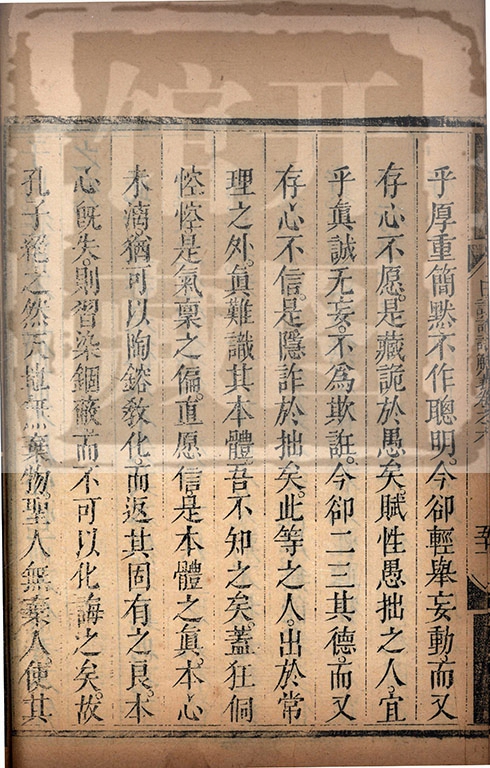 乎厚重簡黙不作聰明。今卻輕舉妄動。而又
存心不愿。是藏詭於愚矣。賦性愚拙之人。宜
乎眞誠无妄。不為欺誑。今卻二三其德。而又
存心不信。是隱詐於拙矣。此等之人。出於常
理之外。眞難識其本體。吾不知之矣。蓋狂侗
悾悾是氣稟之偏。直愿信是本體之眞。本心
未漓。猶可以陶鎔敎化。而返其固有之良。本
心旣失。則習染錮蔽。而不可以化誨之矣。故
孔子絕之。然天地無棄物。聖人無棄人。使其